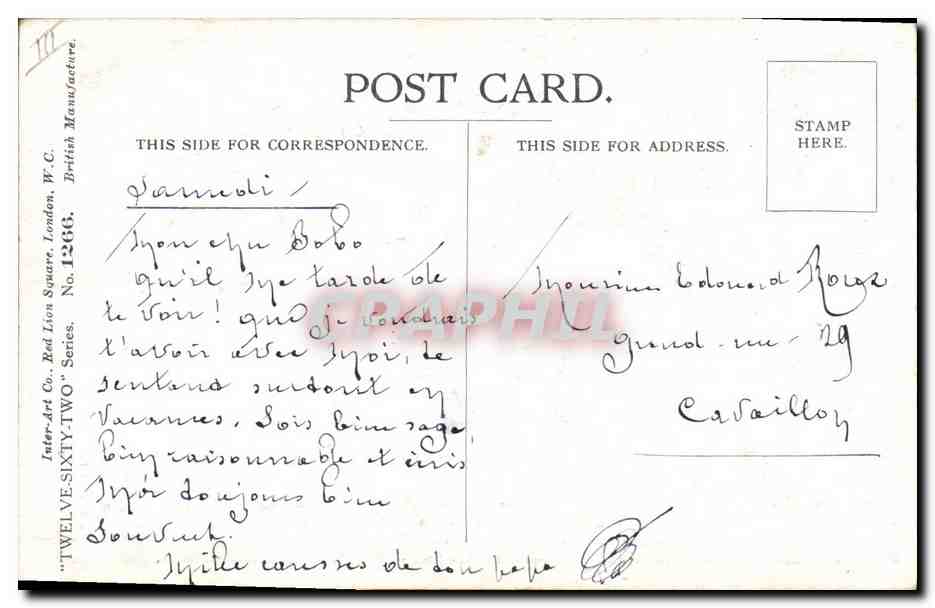 III
Inter-Art Co., Red Lion Square, London, W.C.
British Manufacture.
"TWELVE-SIXTY-TWO" Series. No. 1266.
POST CARD.
THIS SIDE FOR CORRESPONDENCE.
THIS SIDE FOR ADDRESS.
STAMP
HERE.
Samedi
Mon cher Bobo
qu'il me tarde de
te voir! que je voudrais
t'avoir avec moi, te
sentant surtout en
vacances. Sois bien sage,
bien raisonnable et écris
moi toujours bien
souvent.
Mille caresses de ton papa
Monsieur Edouard
Grand-rue 29
Cavaillon
CRAPHIL